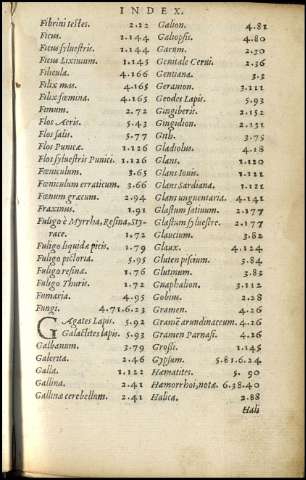 INDEX.
Fibrini testes. 2.22
Ficus. 1.144
Ficus sylvestris. 1.144
Ficus Lixiuium. 1.145
Filicula. 4.166
Filix mas. 4.165
Filix fœmina. 4.165
Fimum. 2.72
Flos Aeris. 5.43
Flos salis. 5.77
Flos Punicæ. 1.126
Flos sylvestris Punici. 1.126
Fœniculum. 3.65
Fœniculum erraticum. 3.66
Fœnum græcum. 2.94
Fraxinus. 1.91
Fuligo è Myrrha, Resina, Sty-
race. 1.72
Fuligo liquidæ picis. 1.79
Fuligo pictoria. 5.95
Fuligo resinæ. 1.76
Fuligo Thuris. 1.72
Fumaria. 4.95
Fungi. 4.71.6.23
GAgates Lapis. 5.92
Galactites lapis. 5.93
Galbanum. 3.79
Galerita. 2.46
Galla. 1.122
Gallina. 2.41
Gallinæ cerebellum. 2.41
Galion. 4.81
Galiopsis. 4.80
Garum. 2.30
Genitale Cerui. 2.36
Gentiana. 3.3
Geranion. 3.111
Geodes Lapis. 5.93
Gingiberis. 2.152
Gingidion. 2.131
Gith. 3.75
Gladiolus. 4.18
Glans. 1.120
Glans Iouis. 1.121
Glans Sardiana. 1.121
Glans unguentaria. 4.141
Glastum satiuum. 2.177
Glastum sylvestre. 2.177
Glaucium. 3.82
Glaux. 4.124
Gluten piscium. 5.84
Glutinum. 3.82
Gnaphalion. 3.112
Gobius. 2.28
Gramen. 4.26
Gramē arundinaceum. 4.26
Gramen Parnasi. 4.26
Grossi. 1.145
Gypsum. 5.81.6.24
Hæmatites. 5. 90
Hæmorrhoi, notæ. 6.38.40
Halica. 2.88
Hali